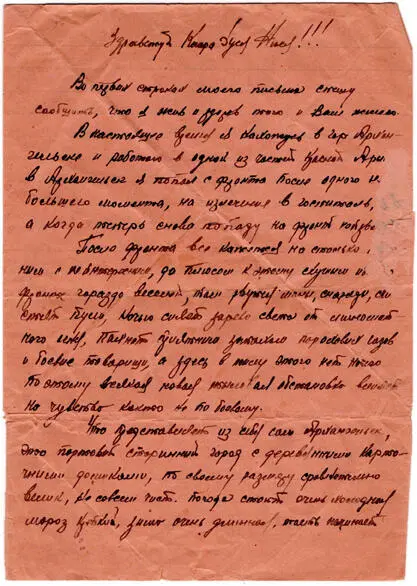 Здравствуй Кара Гуся Нися!!!
Во первых строках моего письма спешу
сообщить, что я жив и здоров того и Вам желаю.
В настоящее время я нахожусь в гор Архан-
гельске и работаю в одной из частей Красной Арм.
в Архангельск я попал с фронта после одного не
большого момента, на излечение в госпиталь,
а когда теперь снова попаду на фронт
После фронта все кажется на столько
до тылосом к этому скушни
фронте гораздо веселей, там снаряды,
пули, ночью сияет зарево света от
ного огня, пахнет приятно запахом пороховых газов
и боевые товарищи, а здесь в тылу этого нет ничего
Поэтому всякая новая тыловая обстановка
на чувство както не по боевому.
Что представляет из себя сам Архангельск,
это портовый старинный город с деревянными
домиками, по своему размеру сравнительно
велик, но не совсем чист. Погода стоит очень
мороз крепкий, зима очень длинная,